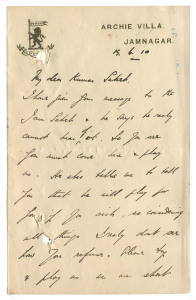 ARCHIE VILLA.
JAMNAGAR.
6 10
My dear Kumar Saheb.
I have given your message to the
Jam Saheb & he says he really
cannot leave. So you see
you must come here & play
us. He also tells me to tell
you that he will play for
you if you wish, so considering
all things I really don't see
how you refuse. Please try
& play us as we are short